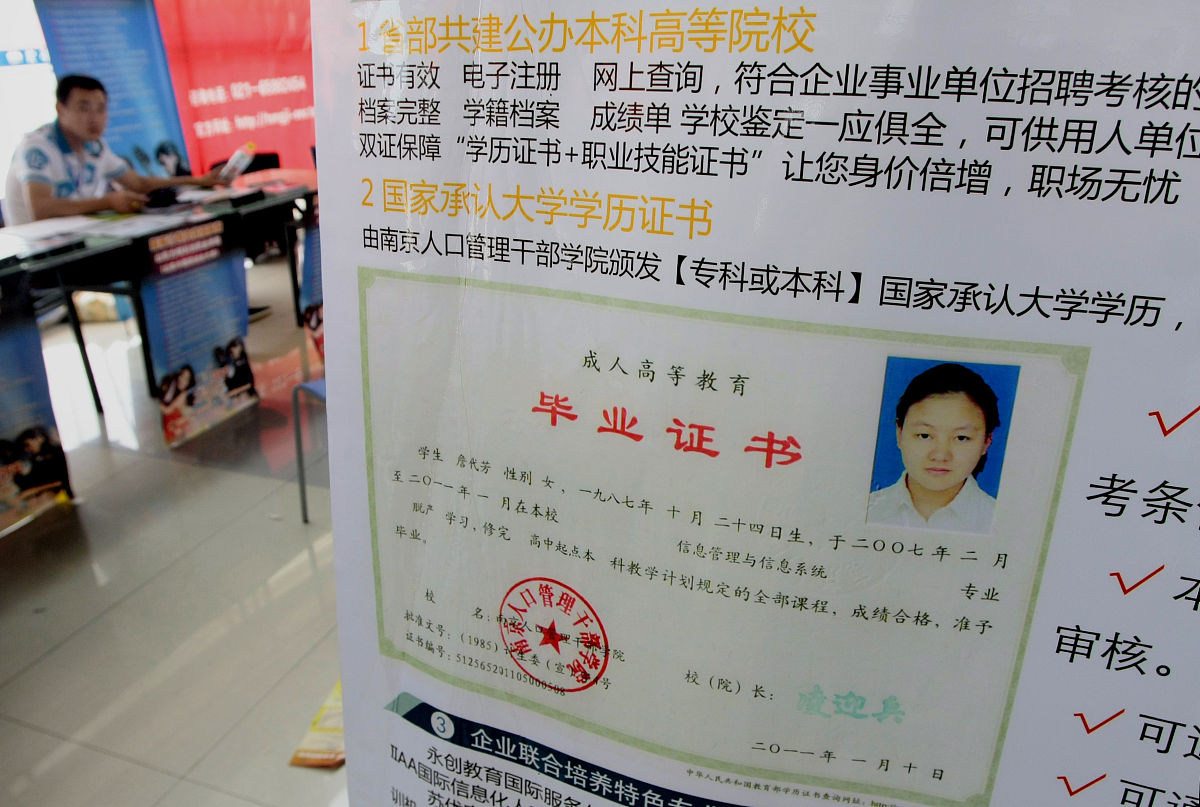 1省部共建公办本科高等院校
证书有效 电子注册 网上查询，符合企业事业单位招聘考核的
档案完整 学籍档案 成绩单 学校鉴定一应俱全，可供用人单位
双证保障“学历证书+职业技能证书”让您身价倍增，职场无忧
2 国家承认大学学历证书
由南京人口管理干部学院颁发【专科或本科】国家承认大学学历，
成人高等教育
毕业证书
学生 詹代芳 性别 女，一九八七年 十 月 二十四日生，于二〇〇七 年 二 月
至二〇一一年 一 月在本校 信息管理与信息系统 专业
脱产 学习，修完 高中起点本 科教学计划规定的全部课程，成绩合格，准予
毕业。
校 名：南京人口管理干部学院
批准文号：(1985)计生委(宣)
证书编号：512565201105000508
南京人口管理干部学院
校（院）长：凌迎兵
二〇一一 年 一 月 十 日
中华人民共和国教育部学历证书查询网址：http
3 企业联合培养特色专
永创教育国际服务
IIAA国际信息化人
训机
考条
本
审核。
可
可